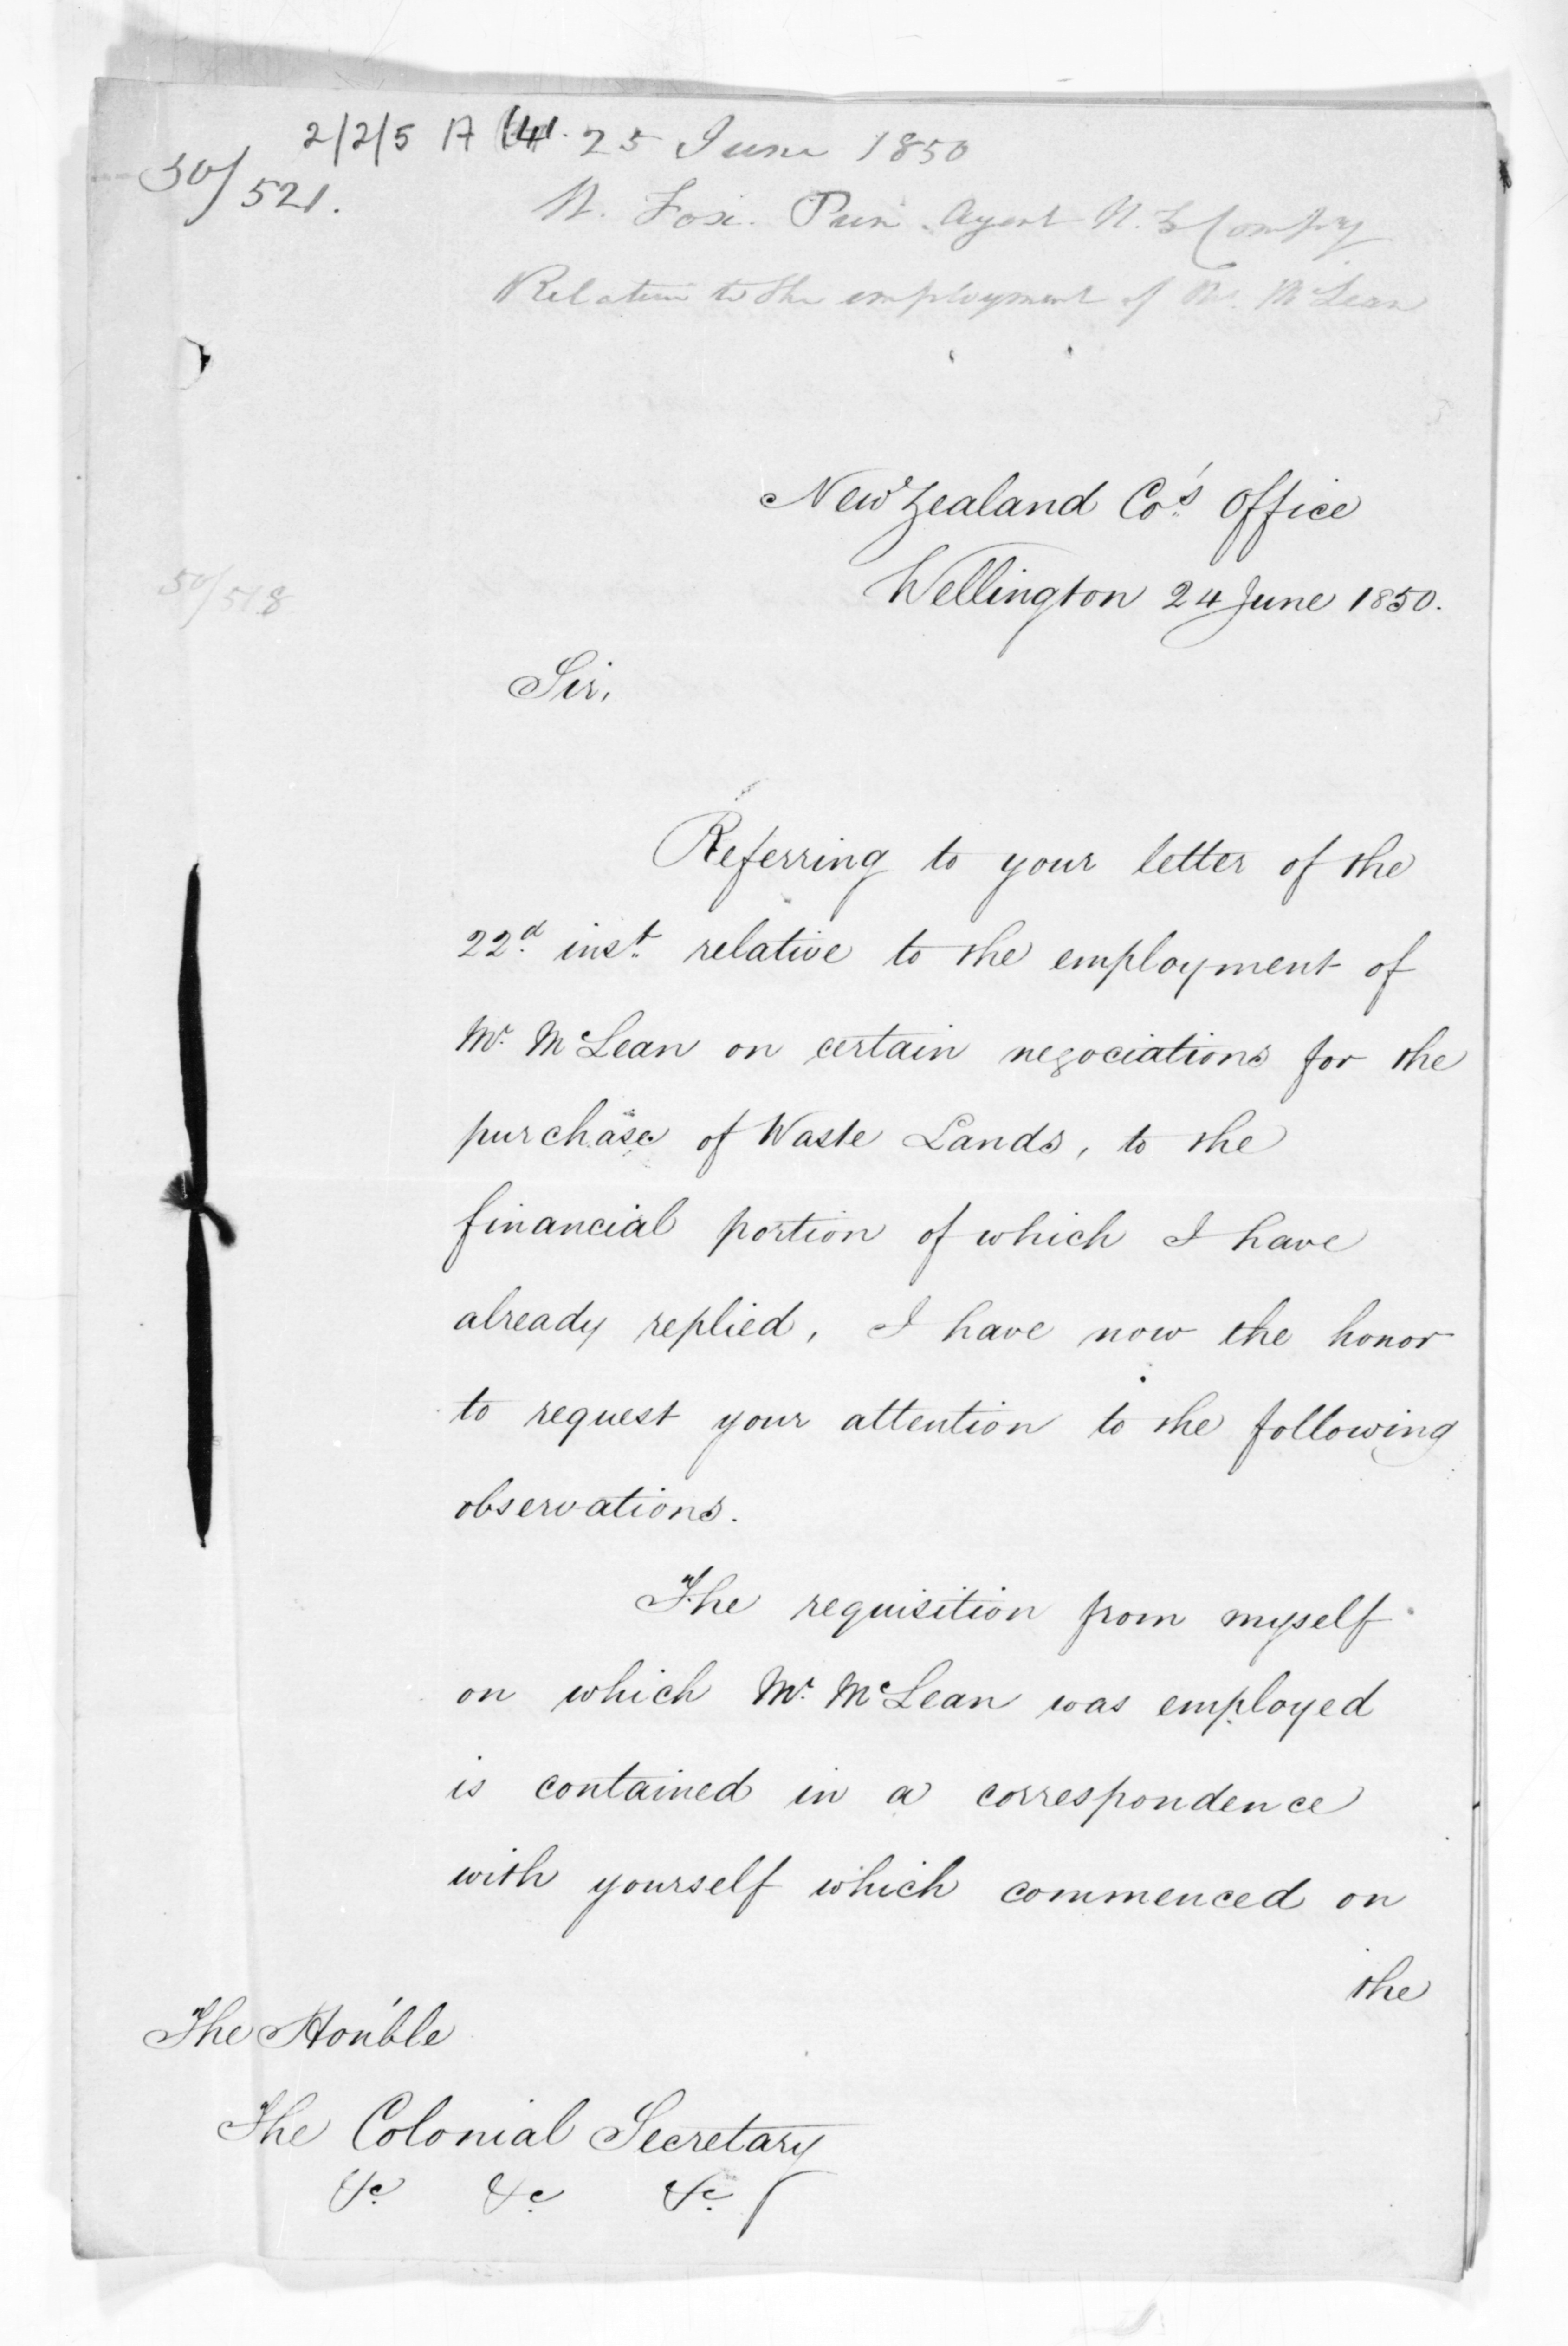 2/2/5 A 25 June 1850
50/521.
W. Fox. Prin. Agent N. Z. Compy
Relative to the employment of Mr. McLean
New Zealand Co.'s Office
50/518
Wellington 24 June 1850.
Sir,
Referring to your letter of the
22d. inst. relative to the employment of
Mr. McLean on certain negociations for the
purchase of Waste Lands, to the
financial portion of which I have
already replied, I have now the honor
to request your attention to the following
observations.
The requisition from myself
on which Mr. McLean was employed
is contained in a correspondence
with yourself which commenced on
the
The Hon'ble
The Colonial Secretary
&c. &c. &c.